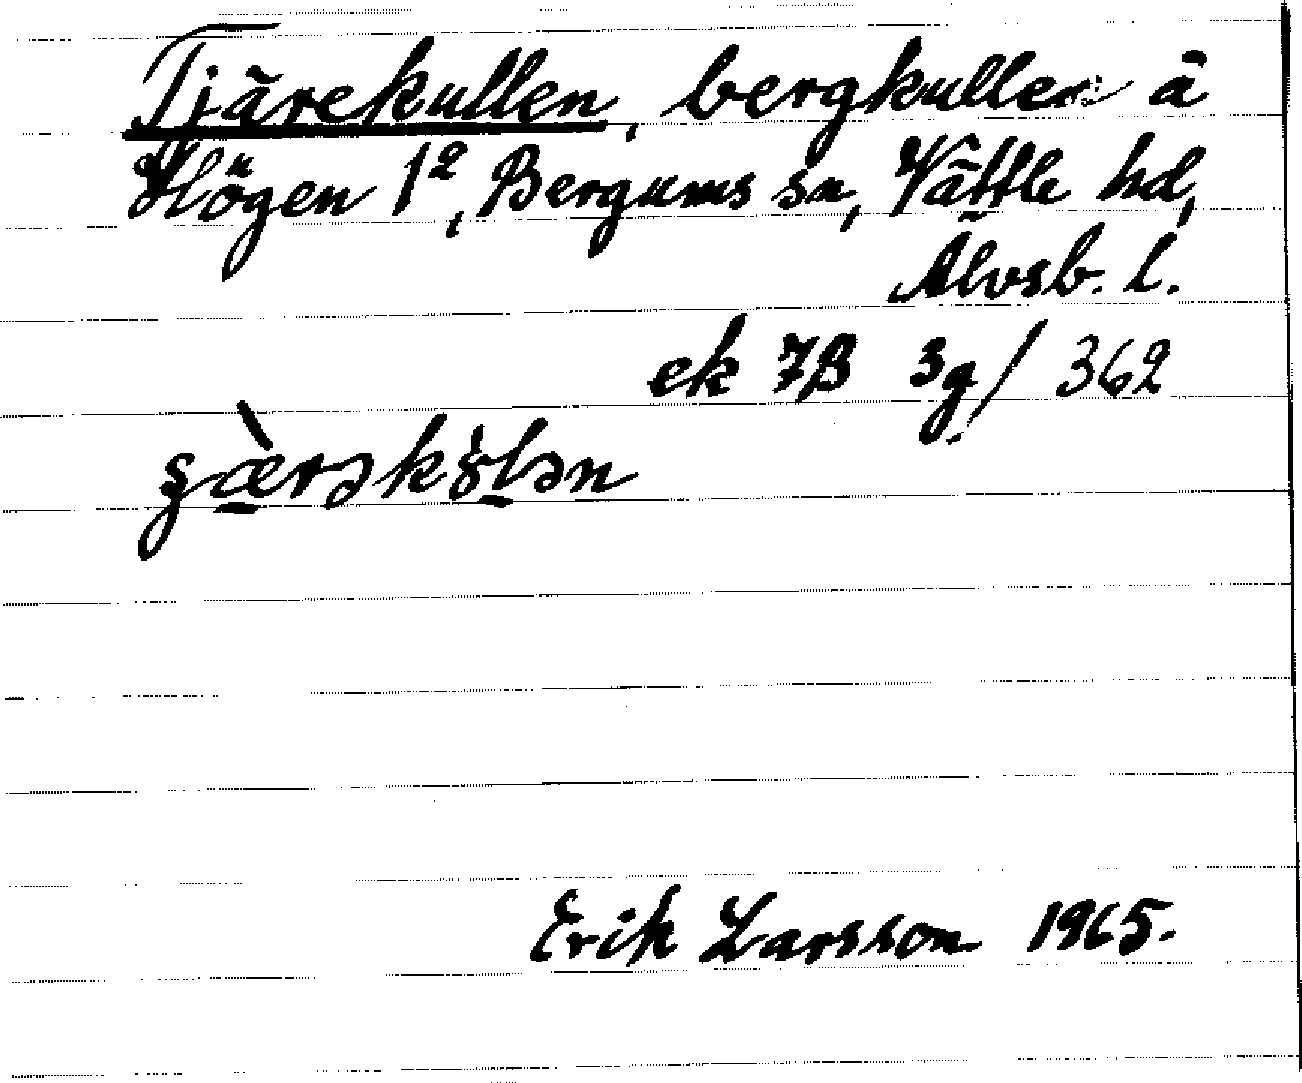 Tjärekullen, bergkullen å
Högen 1², Bergums sn, Vättle hd,
Älvsb. l.
ek 7B 3g/362
Erik Larsson 1965.